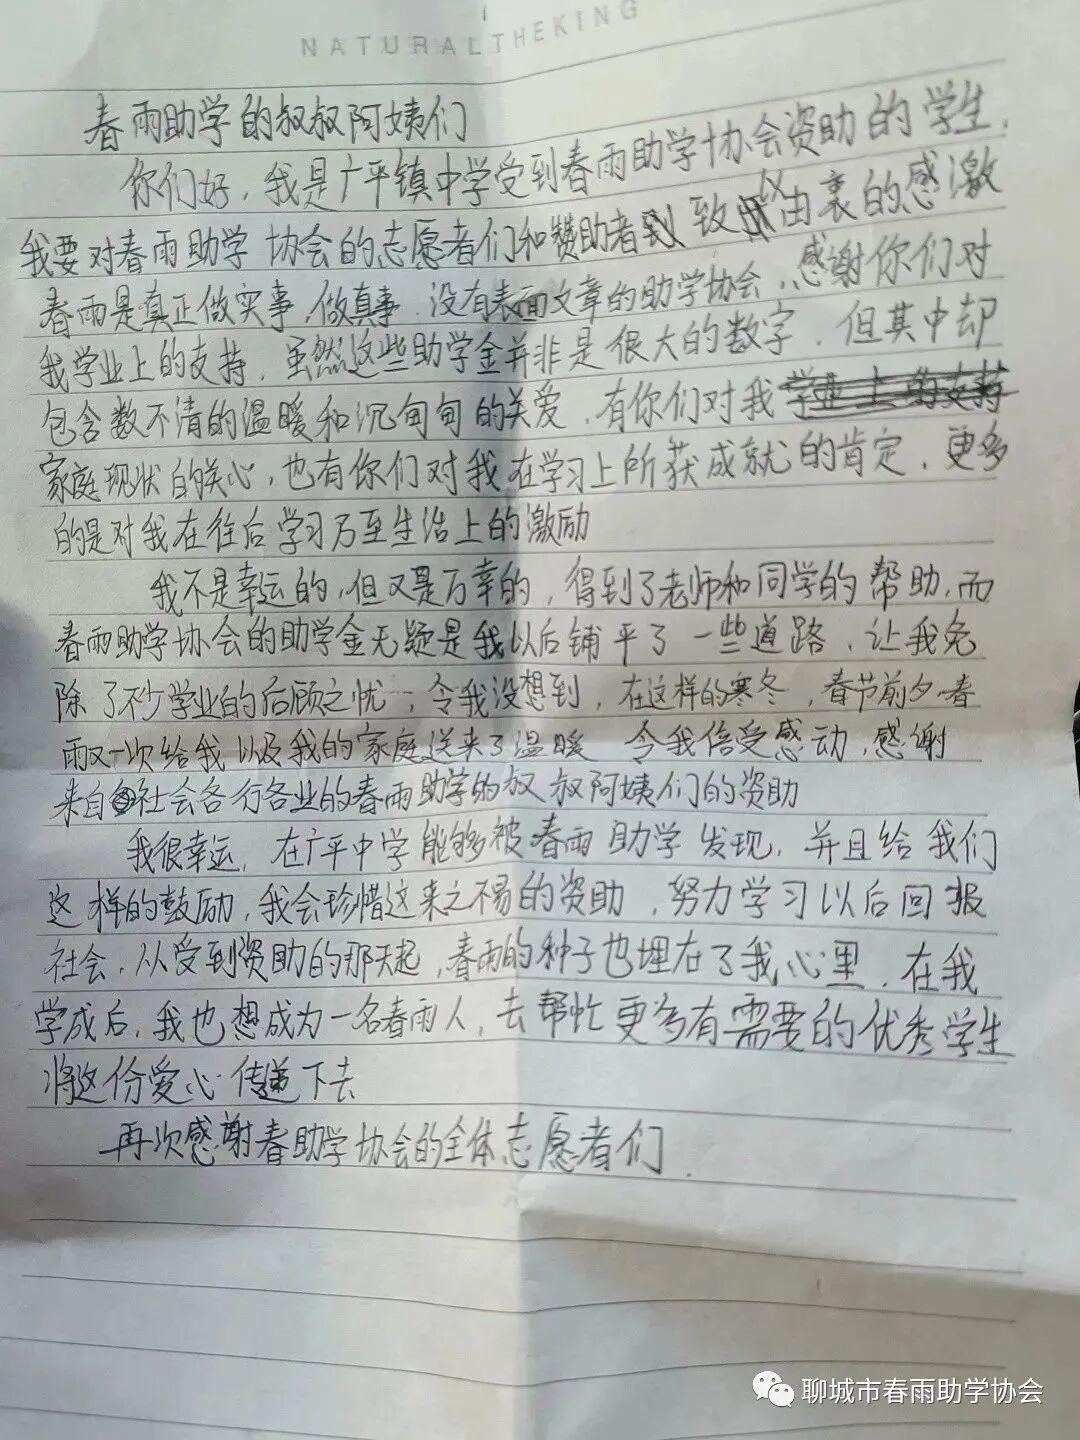 NATURALTHEKING
春雨助学的叔叔阿姨们
你们好，我是广平镇中学受到春雨助学协会资助的学生，
我要对春雨助学协会的志愿者们和赞助者 致以由衷的感激
春雨是真正做实事，做真事，没有表面文章的助学协会，感谢你们对
我学业上的支持，虽然这些助学金并非是很大的数字，但其中却
包含数不清的温暖和沉甸甸的关爱，有你们对我学业上的支持
家庭现状的关心，也有你们对我在学习上所获成就的肯定，更多
的是对我在往后学习乃至生活上的激励
我不是幸运的，但又是万幸的，得到了老师和同学的帮助，而
春雨助学协会的助学金无疑是我以后铺平了一些道路，让我免
除了不少学业的后顾之忧，令我没想到，在这样的寒冬，春节前夕，春
雨又一次给我以及我的家庭送来了温暖 令我倍受感动，感谢
来自社会各行各业的春雨助学的叔叔阿姨们的资助
我很幸运，在广平中学能够被春雨助学发现，并且给我们
这样的鼓励，我会珍惜这来之不易的资助，努力学习以后回报
社会，从受到资助的那天起，春雨的种子也埋在了我心里，在我
学成后，我也想成为一名春雨人，去帮忙更多有需要的优秀学生
将这份爱心传递下去
再次感谢春助学协会的全体志愿者们．
聊城市春雨助学协会